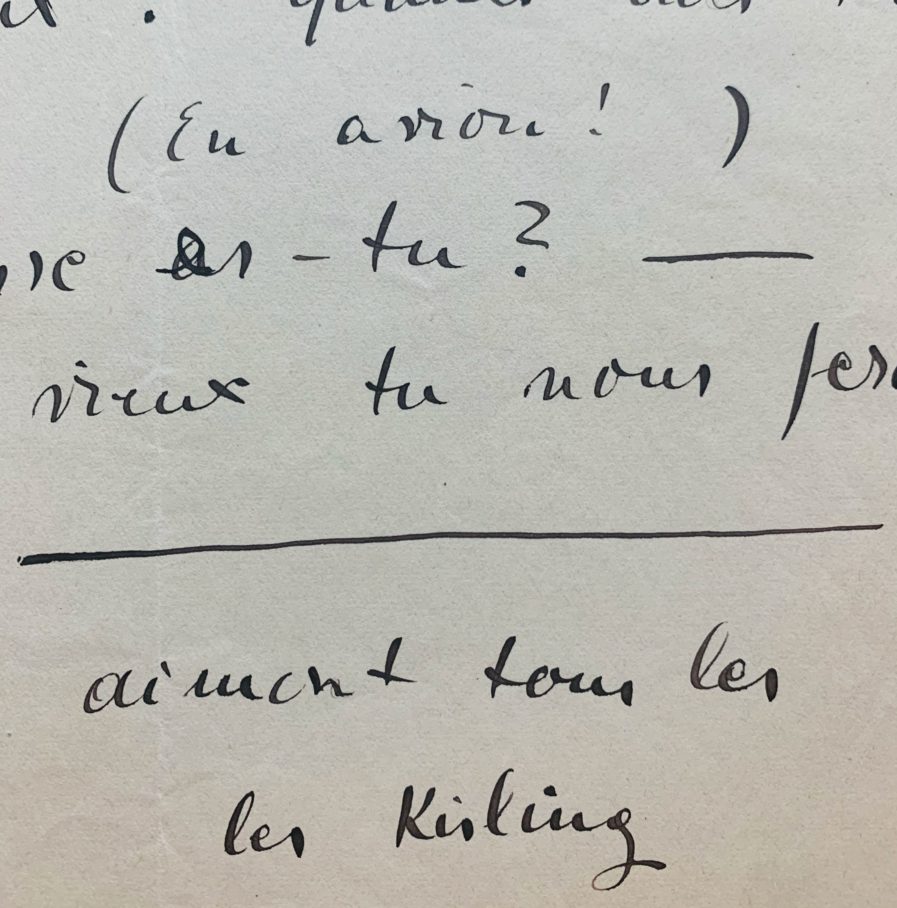 (En avion! )
es-tu? —
vieux tu nous
aiment tous les
les Kisling